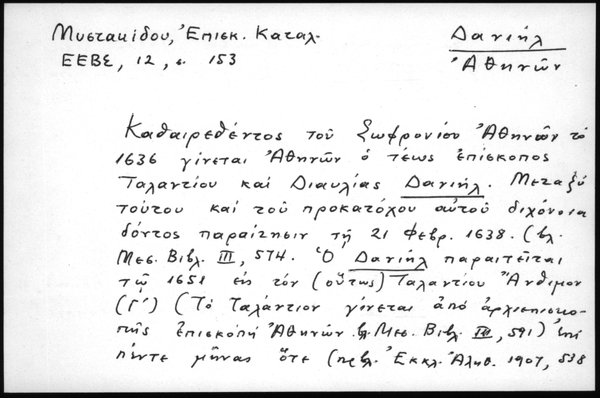 Μυστακίδου, Ἐπισκ. Καταλ.
Δανιήλ
ΕΕΒΣ, 12, σ. 153
Ἀθηνῶν
Καθαιρεθέντος τοῦ Σωφρονίου Ἀθηνῶν τὸ
1636 γίνεται Ἀθηνῶν ὁ τέως ἐπίσκοπος
Ταλαντίου καὶ Διαυλίας Δανιήλ. Μεταξὺ
τούτου καὶ τοῦ προκατόχου αὐτοῦ διχόνοια
δόντος παραίτησιν τῇ 21 Φεβρ. 1638. (βλ.
Μεσ. Βιβλ. III, 574. Ὁ Δανιὴλ παραιτεῖται
τῷ 1651 εἰς τὸν (οὕτως) Ταλαντίου Ἄνθιμον
(Γ΄) (Τὸ Ταλάντιον γίνεται ἀπὸ ἀρχιεπισκο-
πῆς ἐπισκοπὴ Ἀθηνῶν βλ. Μεσ. Βιβλ. III, 591) ἐπὶ
πέντε μῆνας ὅτε (πρβλ. Ἐκκλ. Ἀληθ. 1907, 538